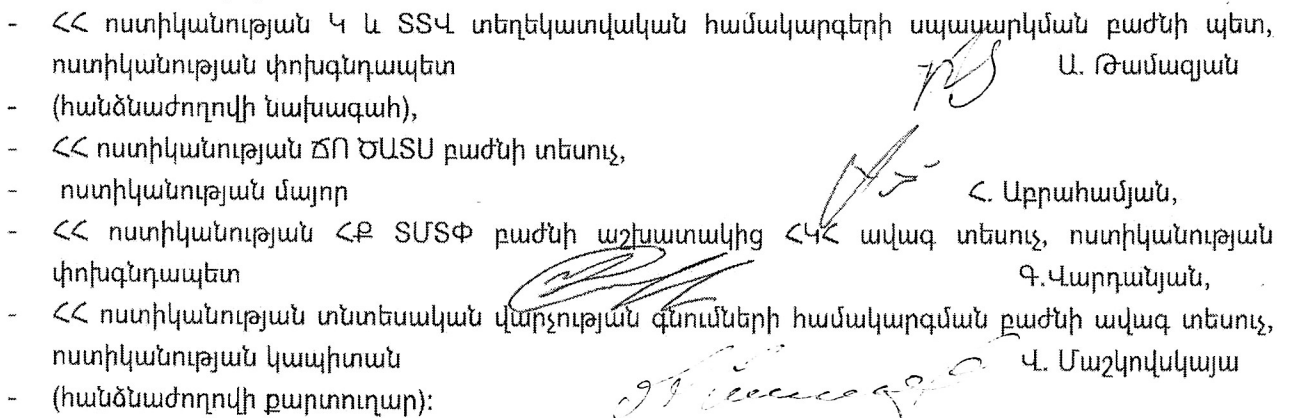 - ՀՀ ոստիկանության Կ և ՏՏՎ տեղեկատվական համակարգերի սպասարկման բաժնի պետ,
ոստիկանության փոխգնդապետ Ա. Թամազյան
- (հանձնաժողովի նախագահ),
- ՀՀ ոստիկանության ՃՈ ԾԱՏՍ բաժնի տեսուչ,
- ոստիկանության մայոր Հ. Աբրահամյան,
- ՀՀ ոստիկանության ՀՔ ՏՄՏՓ բաժնի աշխատակից ՀԿՀ ավագ տեսուչ, ոստիկանության
փոխգնդապետ Գ.Վարդանյան,
- ՀՀ ոստիկանության տնտեսական վարչության գնումների համակարգման բաժնի ավագ տեսուչ,
ոստիկանության կապիտան Վ. Մաշկովսկայա
- (հանձնաժողովի քարտուղար):